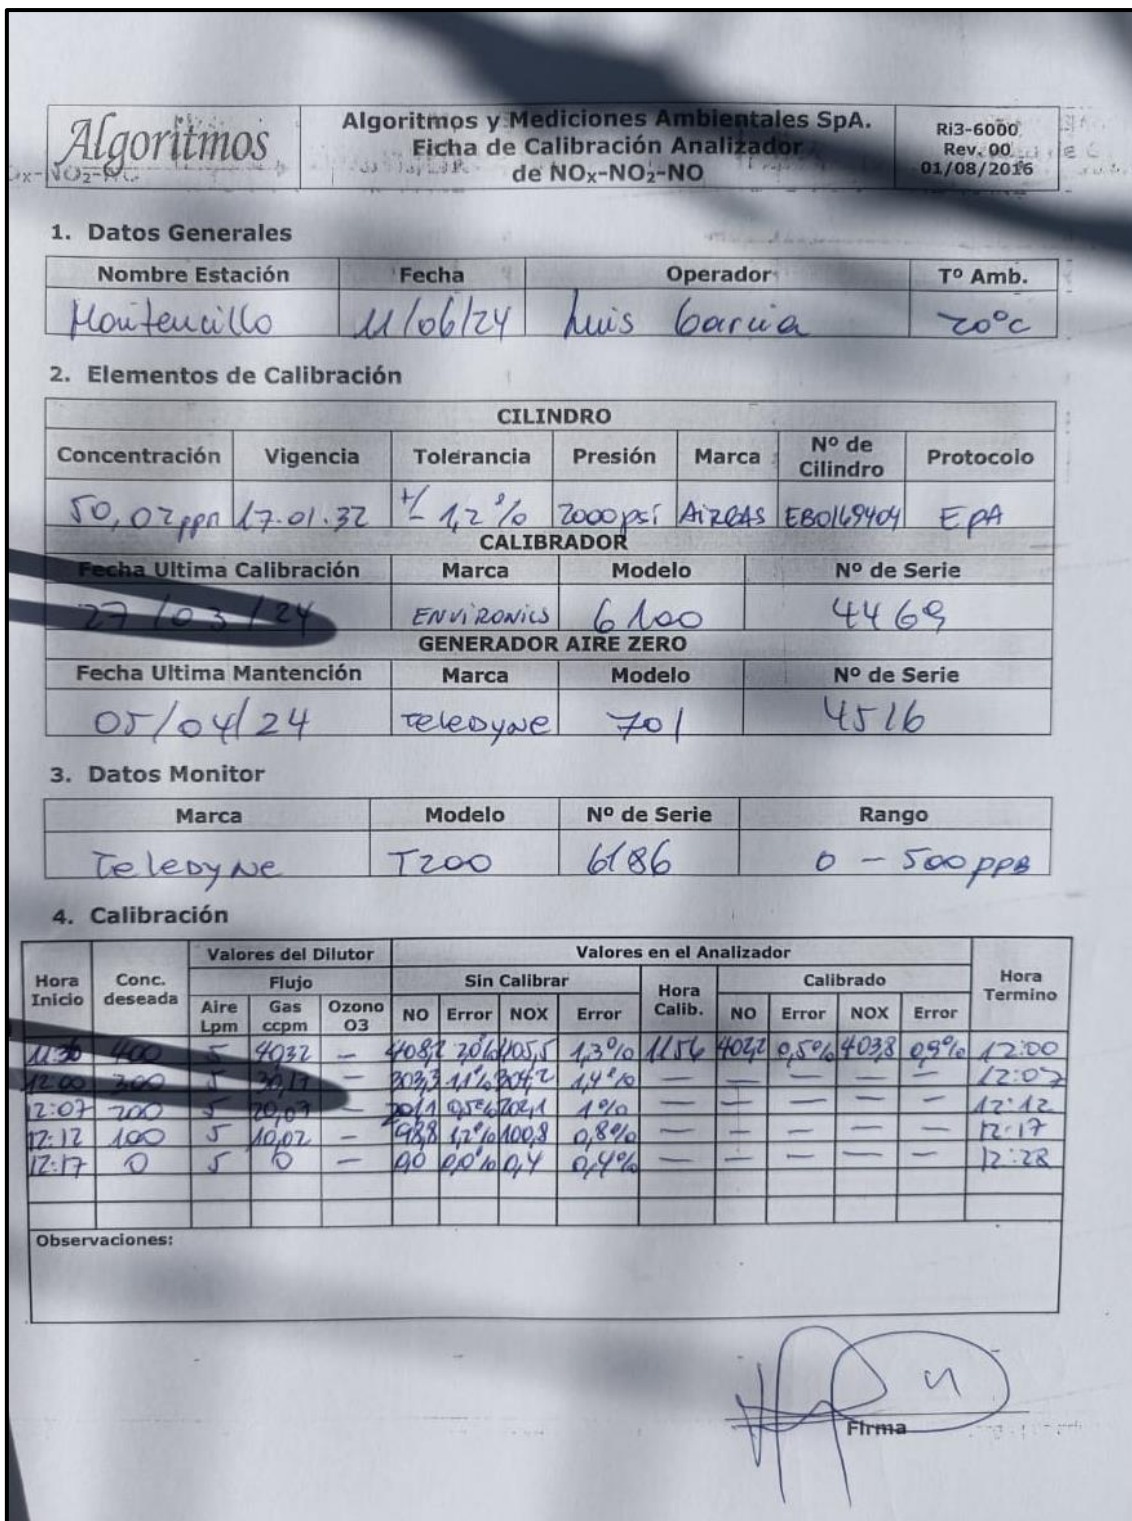 Algoritmos
Algoritmos y Mediciones Ambientales SpA.
Ficha de Calibración Analizador
de NOx-NO2-NO
Ri3-6000
Rev. 00
01/08/2016
1. Datos Generales
Nombre Estación Fecha Operador Tº Amb.
Montencillo 11/06/24 Luis Garcia 20°c
2. Elementos de Calibración
CILINDRO
Concentración Vigencia Tolerancia Presión Marca Nº de Cilindro Protocolo
50,02ppn 17.01.32 +/- 1,2% 2000psi AirGAS EB0169404 EPA
CALIBRADOR
Fecha Ultima Calibración Marca Modelo Nº de Serie
27/03/24 ENVIRONICS 6100 4469
GENERADOR AIRE ZERO
Fecha Ultima Mantención Marca Modelo Nº de Serie
05/04/24 Teledyne 701 4516
3. Datos Monitor
Marca Modelo Nº de Serie Rango
Teledyne T200 6186 0 - 500 ppB
4. Calibración
Valores del Dilutor Valores en el Analizador
Hora Inicio Conc. deseada Flujo Sin Calibrar Hora Calib. Calibrado Hora Termino
Aire Lpm Gas ccpm Ozono O3 NO Error NOX Error NO Error NOX Error
11:36 400 5 4032 — 408,2 2,0% 405,5 1,3% 1156 402,2 0,5% 403,8 0,9% 12:00
12:00 300 5 30,17 — 303,3 1,1% 304,2 1,4% — — — — — 12:07
12:07 200 5 20,07 — 201,1 0,5% 202,1 1% — — — — — 12:12
12:12 100 5 10,02 — 98,8 1,2% 100,8 0,8% — — — — — 12:17
12:17 0 5 0 — 0,0 0,0% 0,4 0,4% — — — — — 12:28
Observaciones:
Firma